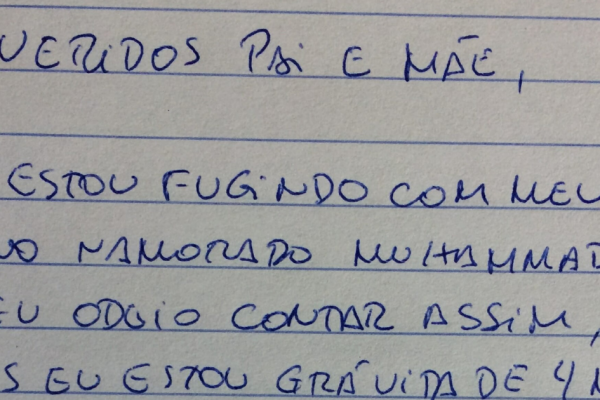 UERIDOS PAI E MÃE,
ESTOU FUGINDO COM MEU
VO NAMORADO MUHAMMAD
EU ODEIO CONTAR ASSIM,
S EU ESTOU GRÁVIDA DE 4 M